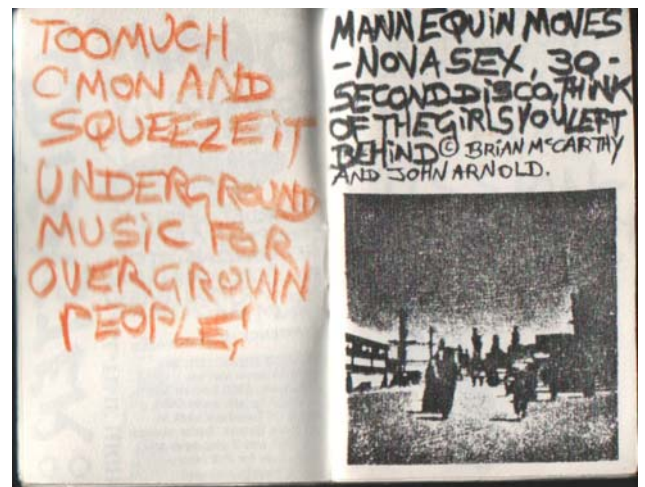 TOOMUCH
C'MON AND
SQUEEZE IT
UNDERGROUND
MUSIC FOR
OVERGROWN
PEOPLE!
MANNEQUIN MOVES
- NOVA SEX, 30 -
SECOND DISCO, THINK
OF THE GIRLS YOU LEFT
BEHIND © BRIAN McCARTHY
AND JOHN ARNOLD.